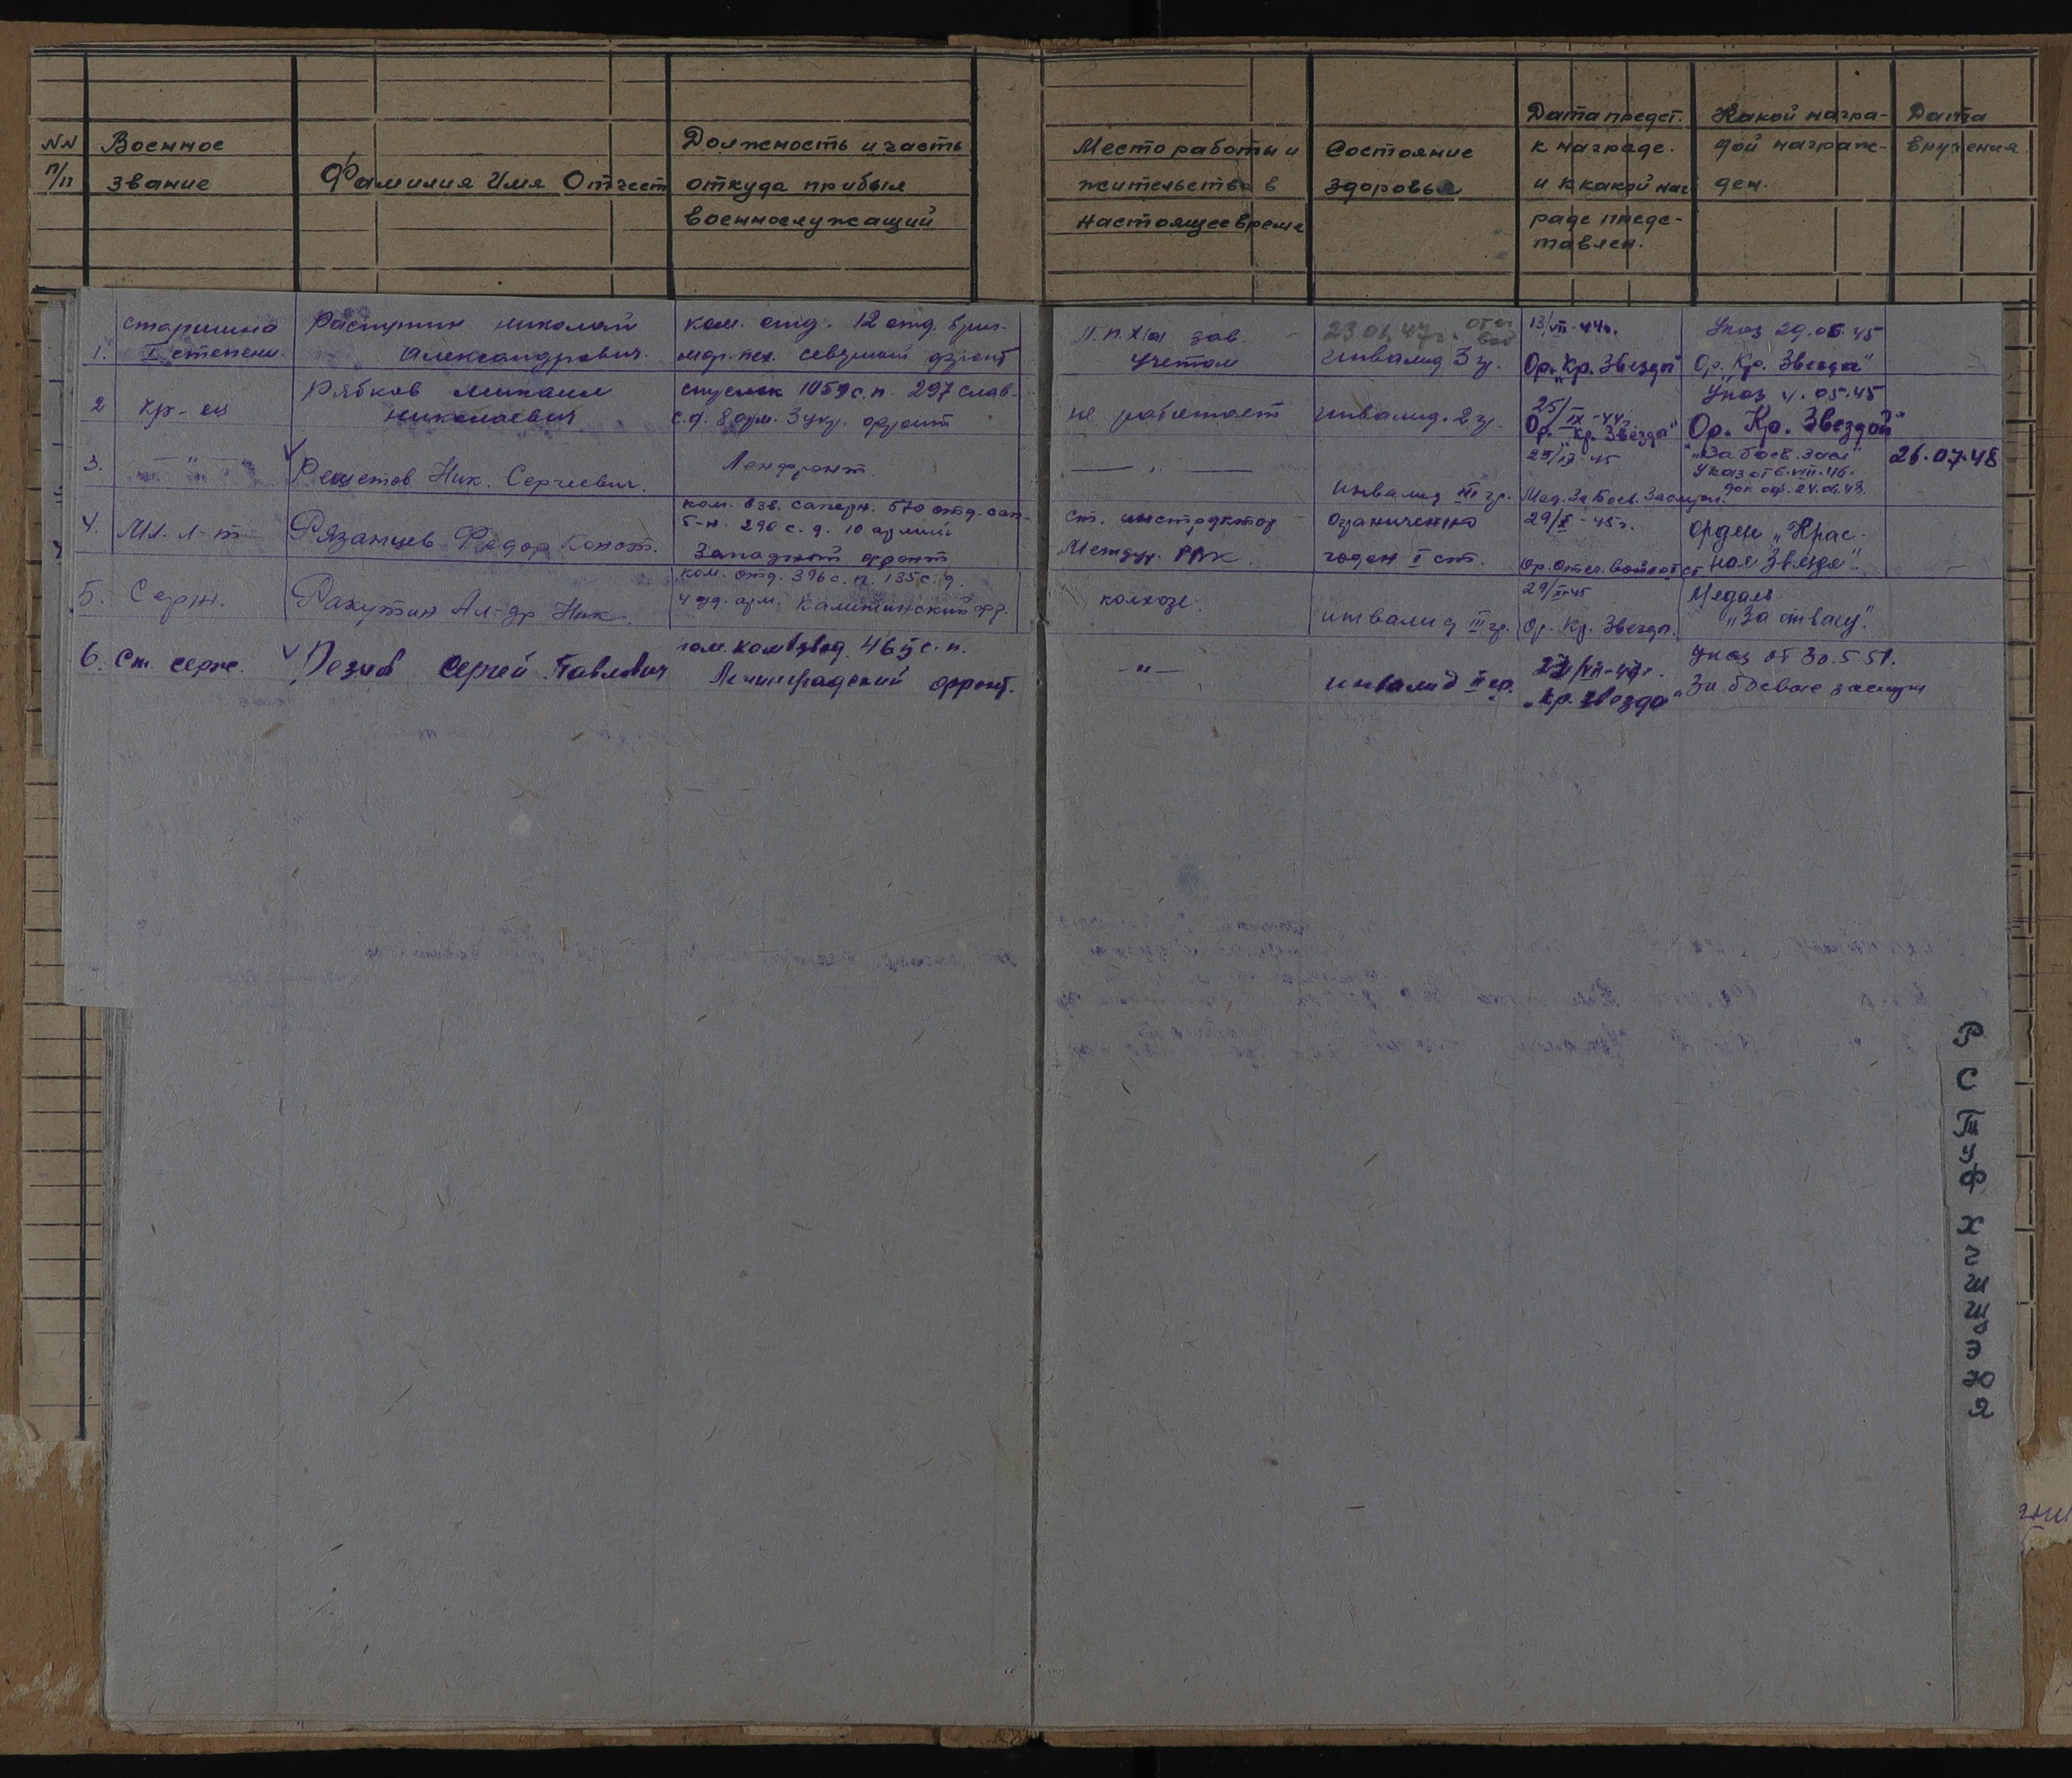 NN п/п
Военное звание
Фамилия Имя Отчест
Должность и часть
откуда прибыл
военнослужащий
Место работы и
жительства в
настоящее время
Состояние
здоровья
Дата предст.
к награде.
и к какой наг
раде предс-
тавлен.
Какой награ-
дой награж-
ден.
Дата
вручения.
1.
старшина
I степени
Распутин Николай
Александрович.
ком. отд. 12 отд. бриг.
мор. пех. северный фронт
зав.
учетом
23 06 47г.
инвалид 3 гр.
13/VII-44г.
Ор. "Кр. Звезды"
Указ 29.06.45
Ор. Кр. Звезда"
2
кр-ец
Рябков Михаил
Николаевич
1059 с.п. 297 слав.
с.д. 8 арм. 3 укр. фронт
не работает
инвалид. 2 гр.
25/IX-44г.
Ор. "Кр. Звезды"
Указ 4.05.45
Ор. Кр. Звездой"
3.
— " —
Решетов Ник. Сергеевич.
Ленфронт.
— " —
инвалид III гр.
25/IX-45
Мед. За Боев. Заслуги.
"За боев. засл"
Указ от 6.VIII.46.
24.06.48.
26.07.48
4.
Мл. л-т
Рязанцев Федор Конст.
ком. взв. саперн. 570 отд. сап.
б-н. 290 с.д. 10 армии
Западный фронт
ст. инструктор
РВК.
ограниченно
годен I ст.
29/X-45г.
Ор. Отеч. войны I ст
Орден "Крас-
ная Звезда".
5.
Серж.
Ракутин Ал-др Ник.
ком. отд. 396 с.п. 135 с.д.
4 уд. арм. Калининский фр.
колхозе.
инвалид III гр.
29/X-45
Ор. Кр. Звезды.
Медаль
"За отвагу".
6.
Ст. серж.
Резив Сергей Павлович
пом. комвзвод. 465 с.п.
Ленинградский фронт.
—"—
инвалид II гр.
"Кр. Звезда"
Указ от 30.5 51.
За боевые заслуги
Р
С
Т
У
Ф
Х
Ч
Ш
Щ
Э
Ю
Я